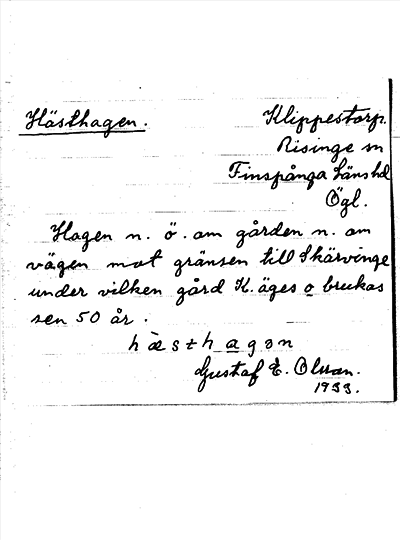 Hästhagen.
Klippestorp.
Risinge sn
Finspånga Länshd
Ögl.
Hagen n. ö. om gården n. om
vägen mot gränsen till Skärvinge
under vilken gård K. äges o brukas
sen 50 år.
hàsthagon
Gustaf E. Olsson.
1933.